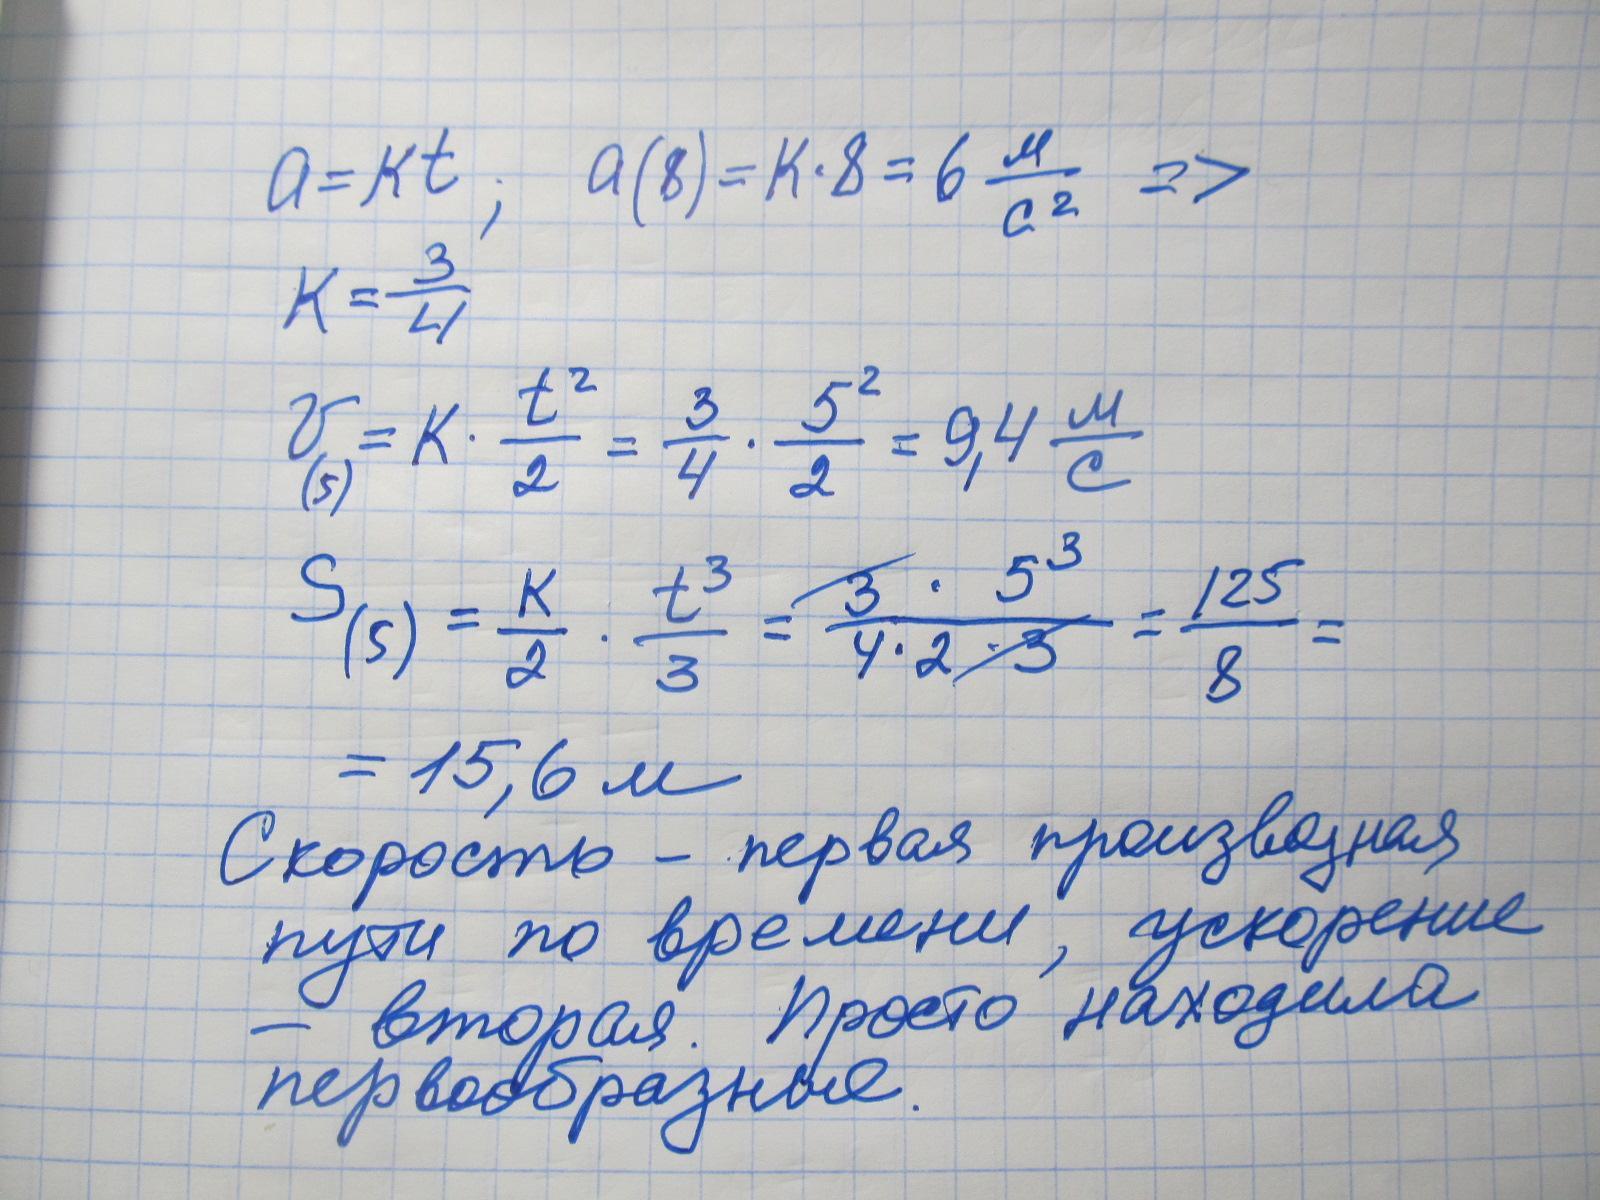 a = kt ; a(8) = k·8 = 6 м/с² =>
k = 3/4
v(5) = k · t²/2 = 3/4 · 5²/2 = 9,4 м/с
S(5) = k/2 · t³/3 = 3 · 5³/4·2·3 = 125/8 =
= 15,6 м
Скорость – первая производная
пути по времени, ускорение
– вторая. Просто находила
первообразные.